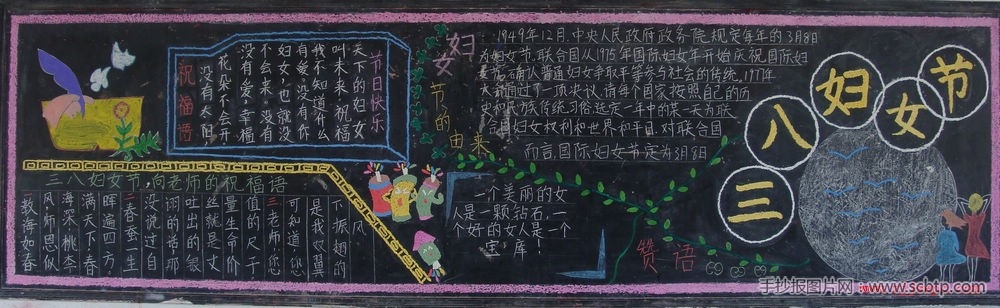 祝福语
节日快乐
天下的妇女
叫未来祝福
我不知道什么
有爱,没有你
妇女,也就没
不会来。没有
没有爱,幸福
花朵不会开
没有太阳,
三八妇女节,向老师的祝福语
教海如春
风师恩似
海深桃李
满天下春
晖遍四方
二春蚕一生
没说过自
诩的话那
吐出的银
丝就是丈
量生命价
值的尺子
三老师您
可知道您
是我双翼
振翅的
风
妇女节的由来
1949年12月,中央人民政府政务院规定每年的3月8日
为妇女节.联合国从1975年国际妇女年开始庆祝国际妇
女节,确认普通妇女争取平等参与社会的传统,1977年
大会通过了一项决议,请每个国家按照自己的历
史和民族传统习俗,选定一年中的某一天为联
合国妇女权利和世界和平日.对联合国
而言,国际妇女节定为3月8日
一个美丽的女
人是一颗钻石,一
个好的女人是一个
宝库!
赞语
三八妇女节
手抄报图片网 www.scbtp.com